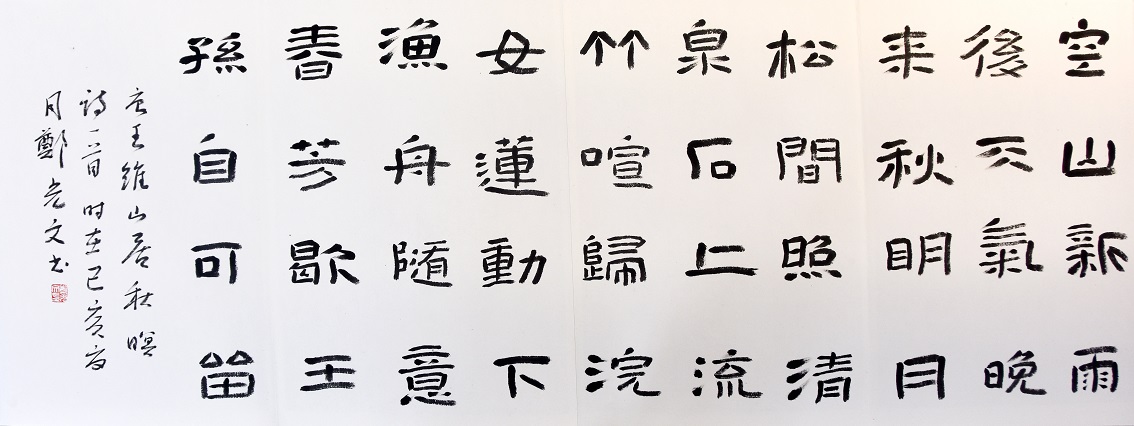 空山新雨
後天氣晚
来秋明月
松間照清
泉石上流
竹喧歸浣
女蓮動下
漁舟随意
春芳歇王
孫自可留
唐王維山居秋暝
詩一首时在己亥夏
月鄭光文书